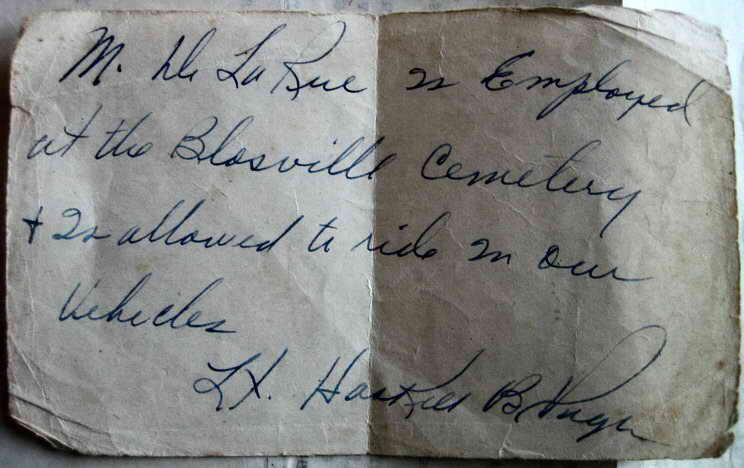 M. De La Rue is Employed
at the Blosville Cemetery
+ Is allowed to ride in our
Vehicles
Lt. Haskell B.